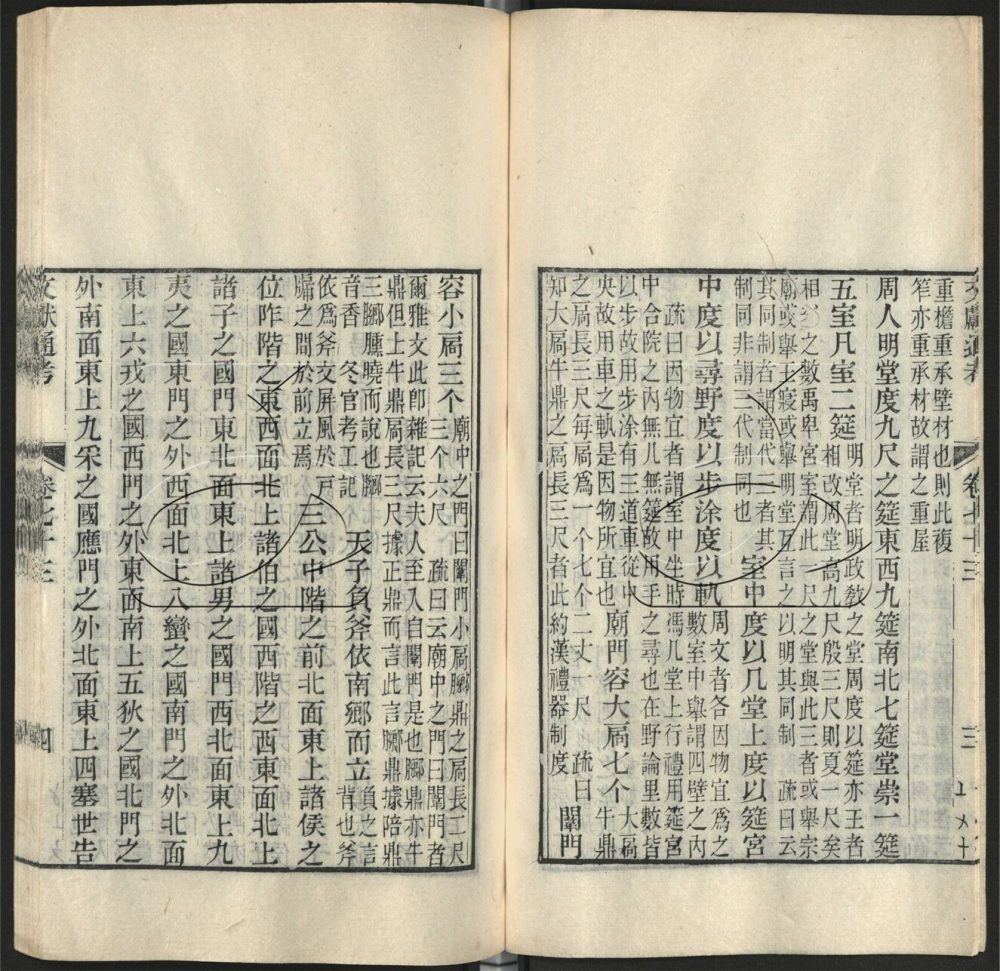 重檐重承壁材也則此複
笮亦重承材故謂之重屋
周人明堂度九尺之筵東西九筵南北七筵堂崇一筵
五室凡室二筵
明堂者明政敎之堂周度以筵亦王者
相改周堂高九尺殷三尺則夏一尺矣
相參之數禹卑宮室謂此一尺之堂與此三者或舉宗
廟或舉王寢或舉明堂互言之以明其同制 疏曰云
其同制者謂當代三者其
制同非謂三代制同也
室中度以几堂上度以筵宮
中度以尋野度以步涂度以軌
周文者各因物宜爲之
數室中舉謂四壁之內
疏曰因物宜者謂室中坐時馮几堂上行禮用筵宮
中合院之內無几無筵故用手之尋也在野論里數皆
以步故用步涂有三道車從中
央故用車之軌是因物所宜也
廟門容大扃七个
大扃牛鼎
之扃長三尺每扃爲一个七个二丈一尺 疏曰
知大扃牛鼎之扃長三尺者此約漢禮器制度
闈門
容小扃三个
廟中之門曰闈門小扃膷鼎之扃長二尺
三个六尺 疏曰云廟中之門曰闈門者
爾雅文此卽雜記云夫人至入自闈門是也膷鼎亦牛
鼎但上牛鼎扃長三尺據正鼎而言此言膷鼎據陪鼎
三膷臐膮而說也膷
音香 冬官考工記
天子負斧依南鄉而立
負之言
背也斧
依爲斧文屏風於戶
牖之間於前立焉
三公中階之前北面東上諸侯之
位阼階之東西面北上諸伯之國西階之西東面北上
諸子之國門東北面東上諸男之國門西北面東上九
夷之國東門之外西面北上八蠻之國南門之外北面
東上六戎之國西門之外東面南上五狄之國北門之
外南面東上九采之國應門之外北面東上四塞世告
文獻通考
卷七十三
四